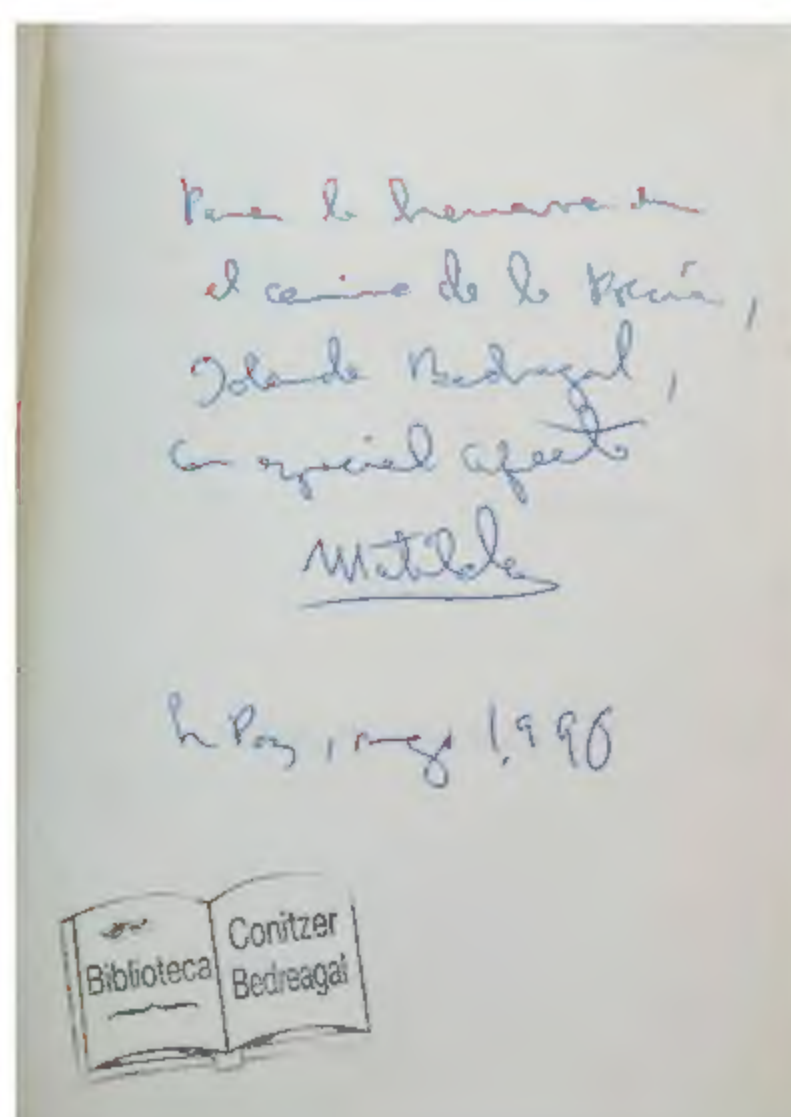 Para la hermana en
el camino de la Poesía,
Yolanda Bedregal,
con especial afecto
Matilde
La Paz, mayo 1.990
Biblioteca
Conitzer
Bedreagal